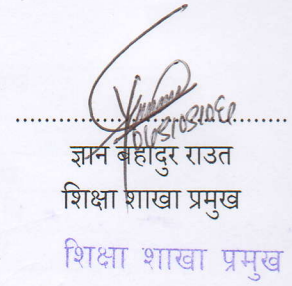 ........................................
ज्ञान बहादुर राउत
शिक्षा शाखा प्रमुख
शिक्षा शाखा प्रमुख